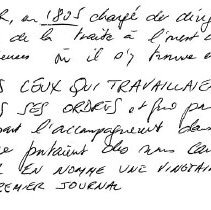 R, en 1805 chargé de dirig
de la traite à l'ouest d
où il s'y trouve e
S CEUX QUI TRAVAILLAIEN
S SES ORDRES et
ant l'accompagnent dans
e portaient des noms can
R EN NOMME UNE VINGTAIN
REMIER JOURNAL